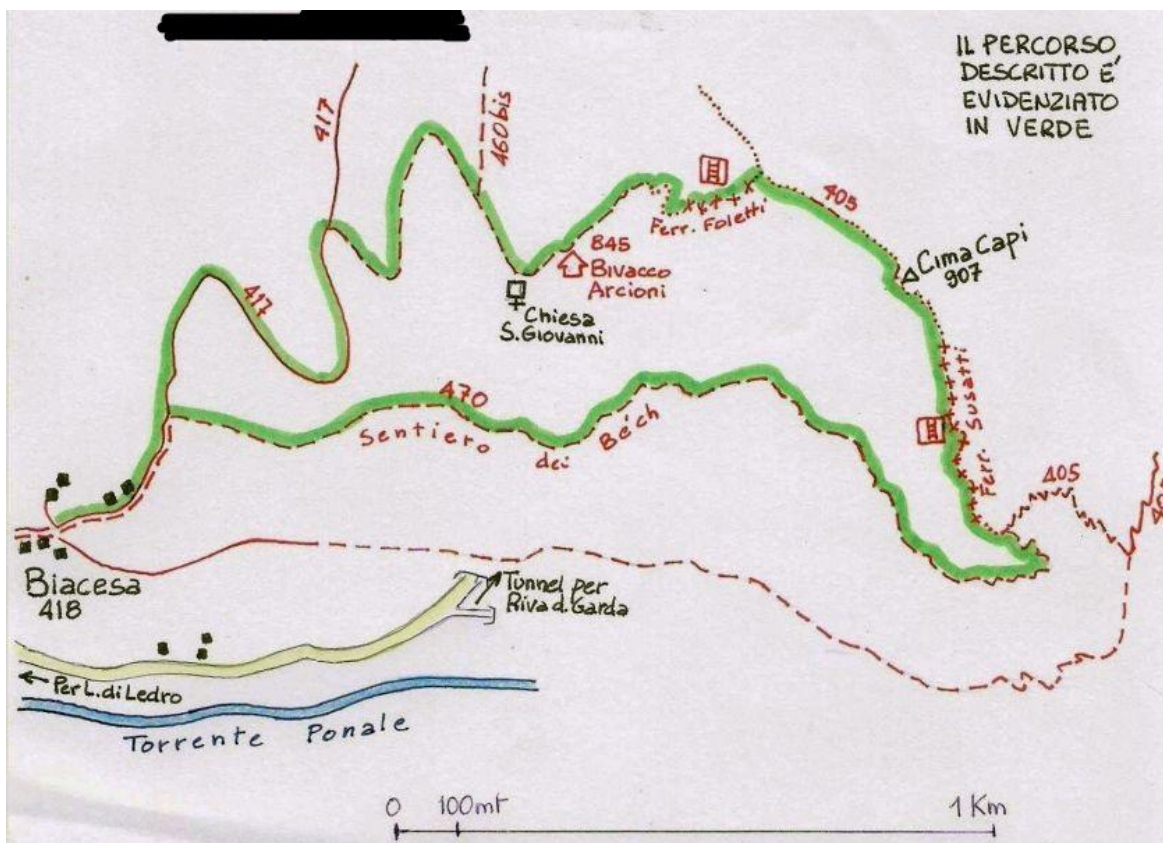 IL PERCORSO
DESCRITTO E'
EVIDENZIATO
IN VERDE
417
460 bis
405
Ferr. Foletti
845
Bivacco
Arcioni
Cima Capi
907
417
Chiesa
S. Giovanni
470
Sentiero dei Béch
Ferr. Susatti
405
Biacesa
418
Tunnel per
Riva d. Garda
Per L. di Ledro
Torrente Ponale
0 100mt 1 Km